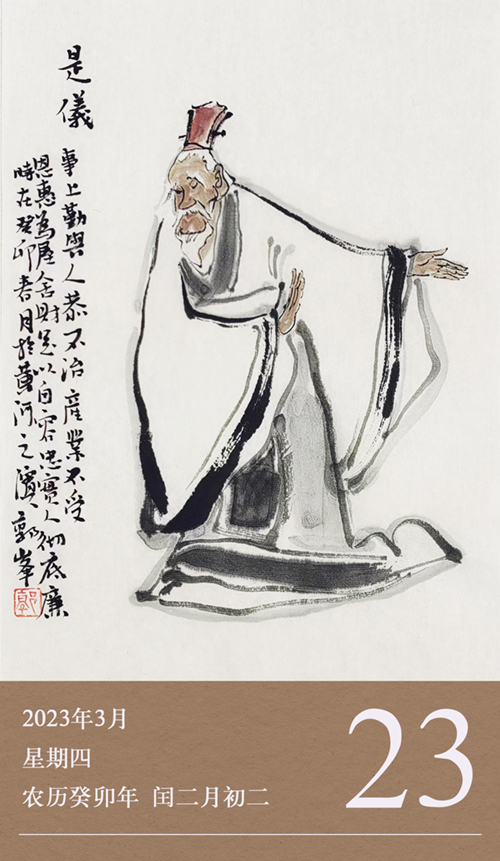 是儀
事上勤與人恭不治產業不受
恩惠為屋舍財足以自容忠實人彻底廉
時在癸卯春月於黃河之濱郭峯
郭
2023年3月
星期四
农历癸卯年 闰二月初二
23